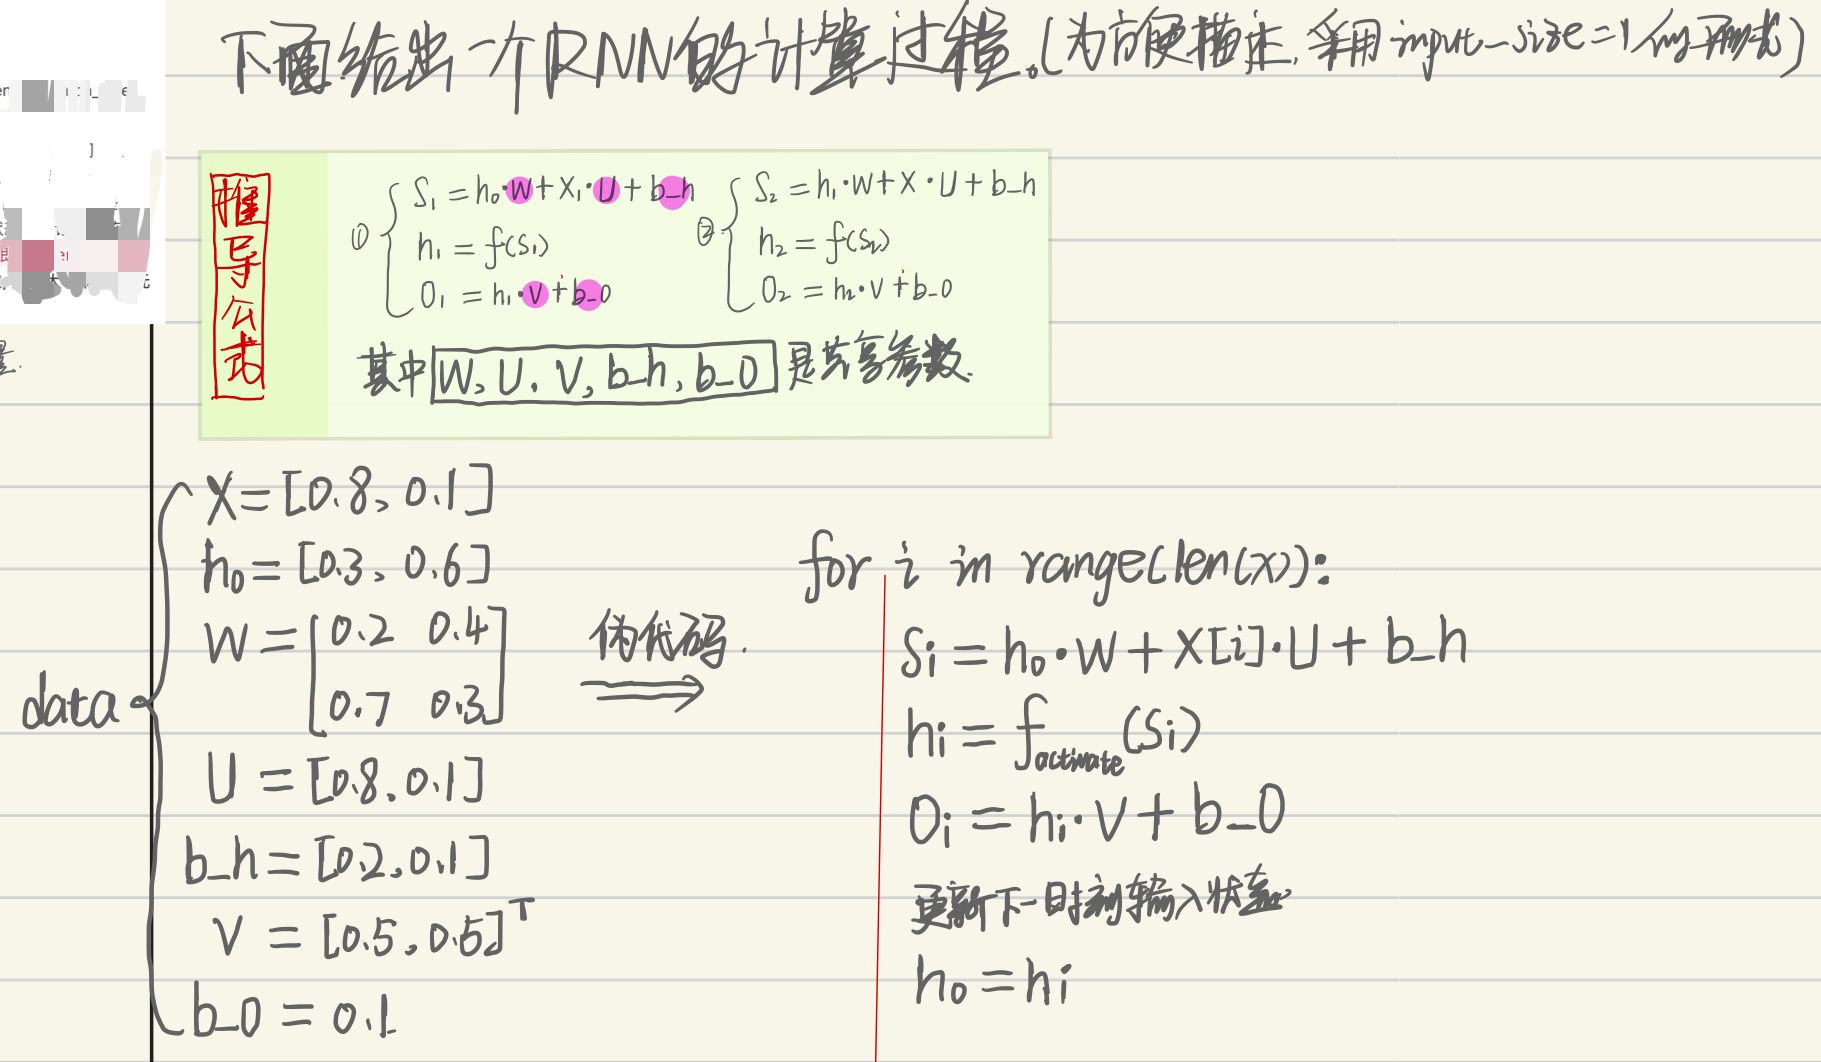 下面给出一个RNN的计算过程.(为方便描述,采用input_size=1的形式)
推导公式
① S₁ = h₀·W+X₁·U+b_h
h₁ = f(S₁)
O₁ = h₁·V+b_O
② S₂ = h₁·W+X·U+b_h
h₂ = f(S₂)
O₂ = h₂·V+b_O
其中 W, U, V, b_h, b_O 是共享参数.
data
X=[0.8, 0.1]
h₀=[0.3, 0.6]
W=[0.2 0.4
0.7 0.3]
U=[0.8, 0.1]
b_h=[0.2, 0.1]
V=[0.5, 0.5]ᵀ
b_O=0.1
伪代码.
for i in range(len(x)):
Si = h₀·W+X[i]·U+b_h
hi = f activate (Si)
Oi = hi·V+b_O
更新下一时刻输入状态
h₀=hi